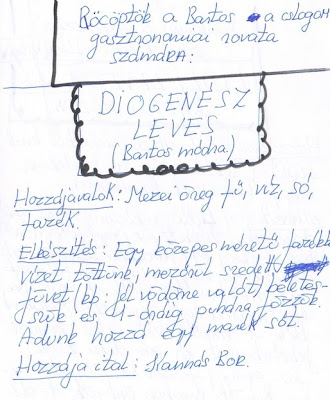 Röcöptök a Bartos a csillagom
gasztronómiai rovata
számára:
DIOGENÉSZ
LEVES
(Bartos módra.)
Hozzájávalók: Mezei öreg fű, víz, só,
fazék.
Elkészítés: Egy közepes méretű fazékba
vizet töltünk, mezőrül szedett
füvet (kb: fél vödörne valót) beletesz-
szük és 4-óráig puhára főzzük.
Adunk hozzá egy marék sót.
Hozzája ital: Kannás Bor.